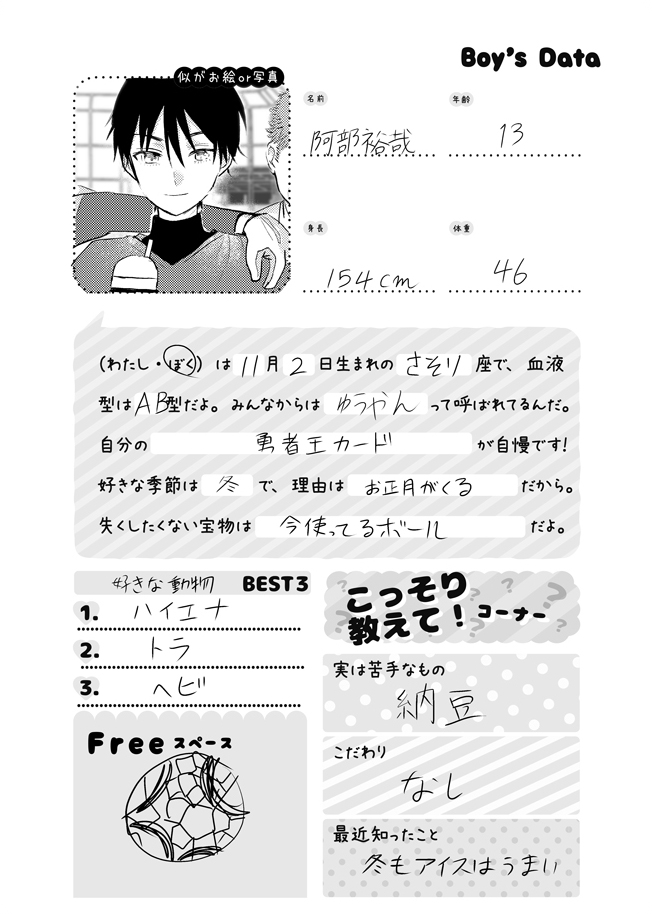 Boy's Data
似がお絵or写真
名前
年齢
阿部裕哉
13
身長
体重
154cm
46
(わたし・ぼく) は 11月 2 日生まれの さそり 座で、血液
型はAB型だよ。みんなからは ゆうやん って呼ばれてるんだ。
自分の 勇者王カード が自慢です!
好きな季節は 冬 で、理由は お正月がくる だから。
失くしたくない宝物は 今使ってるボール だよ。
好きな動物 BEST3
1. ハイエナ
2. トラ
3. ヘビ
Freeスペース
こっそり
教えて!コーナー
実は苦手なもの
納豆
こだわり
なし
最近知ったこと
冬もアイスはうまい